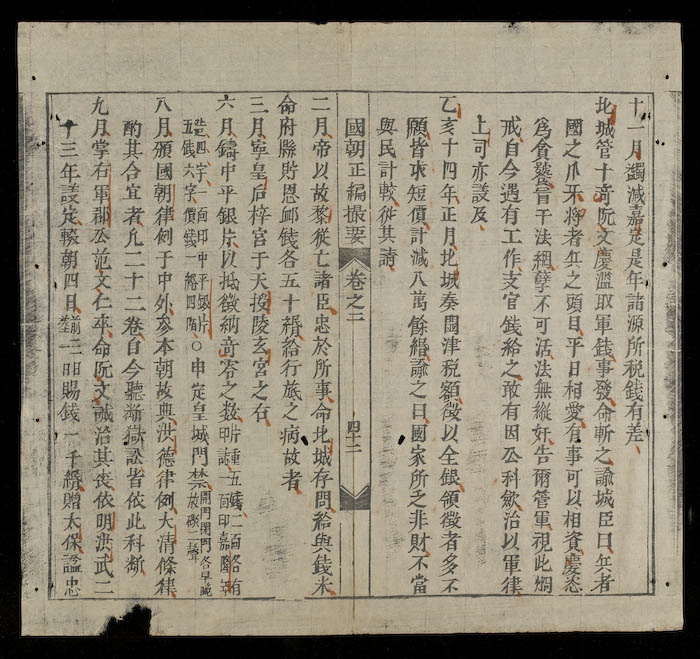 十一月蠲減嘉定是年諸源所税錢有差
北城管十奇阮文慶濫取軍錢事發命斬之諭城臣曰兵者
國之爪牙將者兵之頭目平日相愛有事可以相資慶恣
為貪婪嘗干法網孽不可活法無縱奸告爾管軍視此烱
戒自今遇有工作支官錢給之敢有因公科斂治以軍律
上司亦議及
乙亥十四年正月北城奏関津税額徵以全銀領徵者多不
願皆求短價計減八萬餘緡諭之曰國家所乏非財不當
與民計較從其請
國朝正編撮要 卷之二 四十二
二月帝以故黎從亡諸臣忠於所事命北城存問給與錢米
命府縣貯恩䘏錢各五十緡給行旅之病故者
三月寧皇后梓宮于天授陵玄宮之右
六月鑄中平銀片以抵徵納奇零之数片重五錢二面各有
四字一面印中平銀片
五錢六字價錢一緡四陌○申定皇城門禁開門閉門各早晚放礮一聲
八月頒國朝律例于中外參本朝故典洪德律例大清條律
酌其合宜者凡二十二卷自今聽斷獄訟皆依此科斷
九月掌右軍郡公范文仁卒命阮文誠治其喪依明洪武二
十三年議定輟朝四月三日賜錢一千緡贈太保諡忠